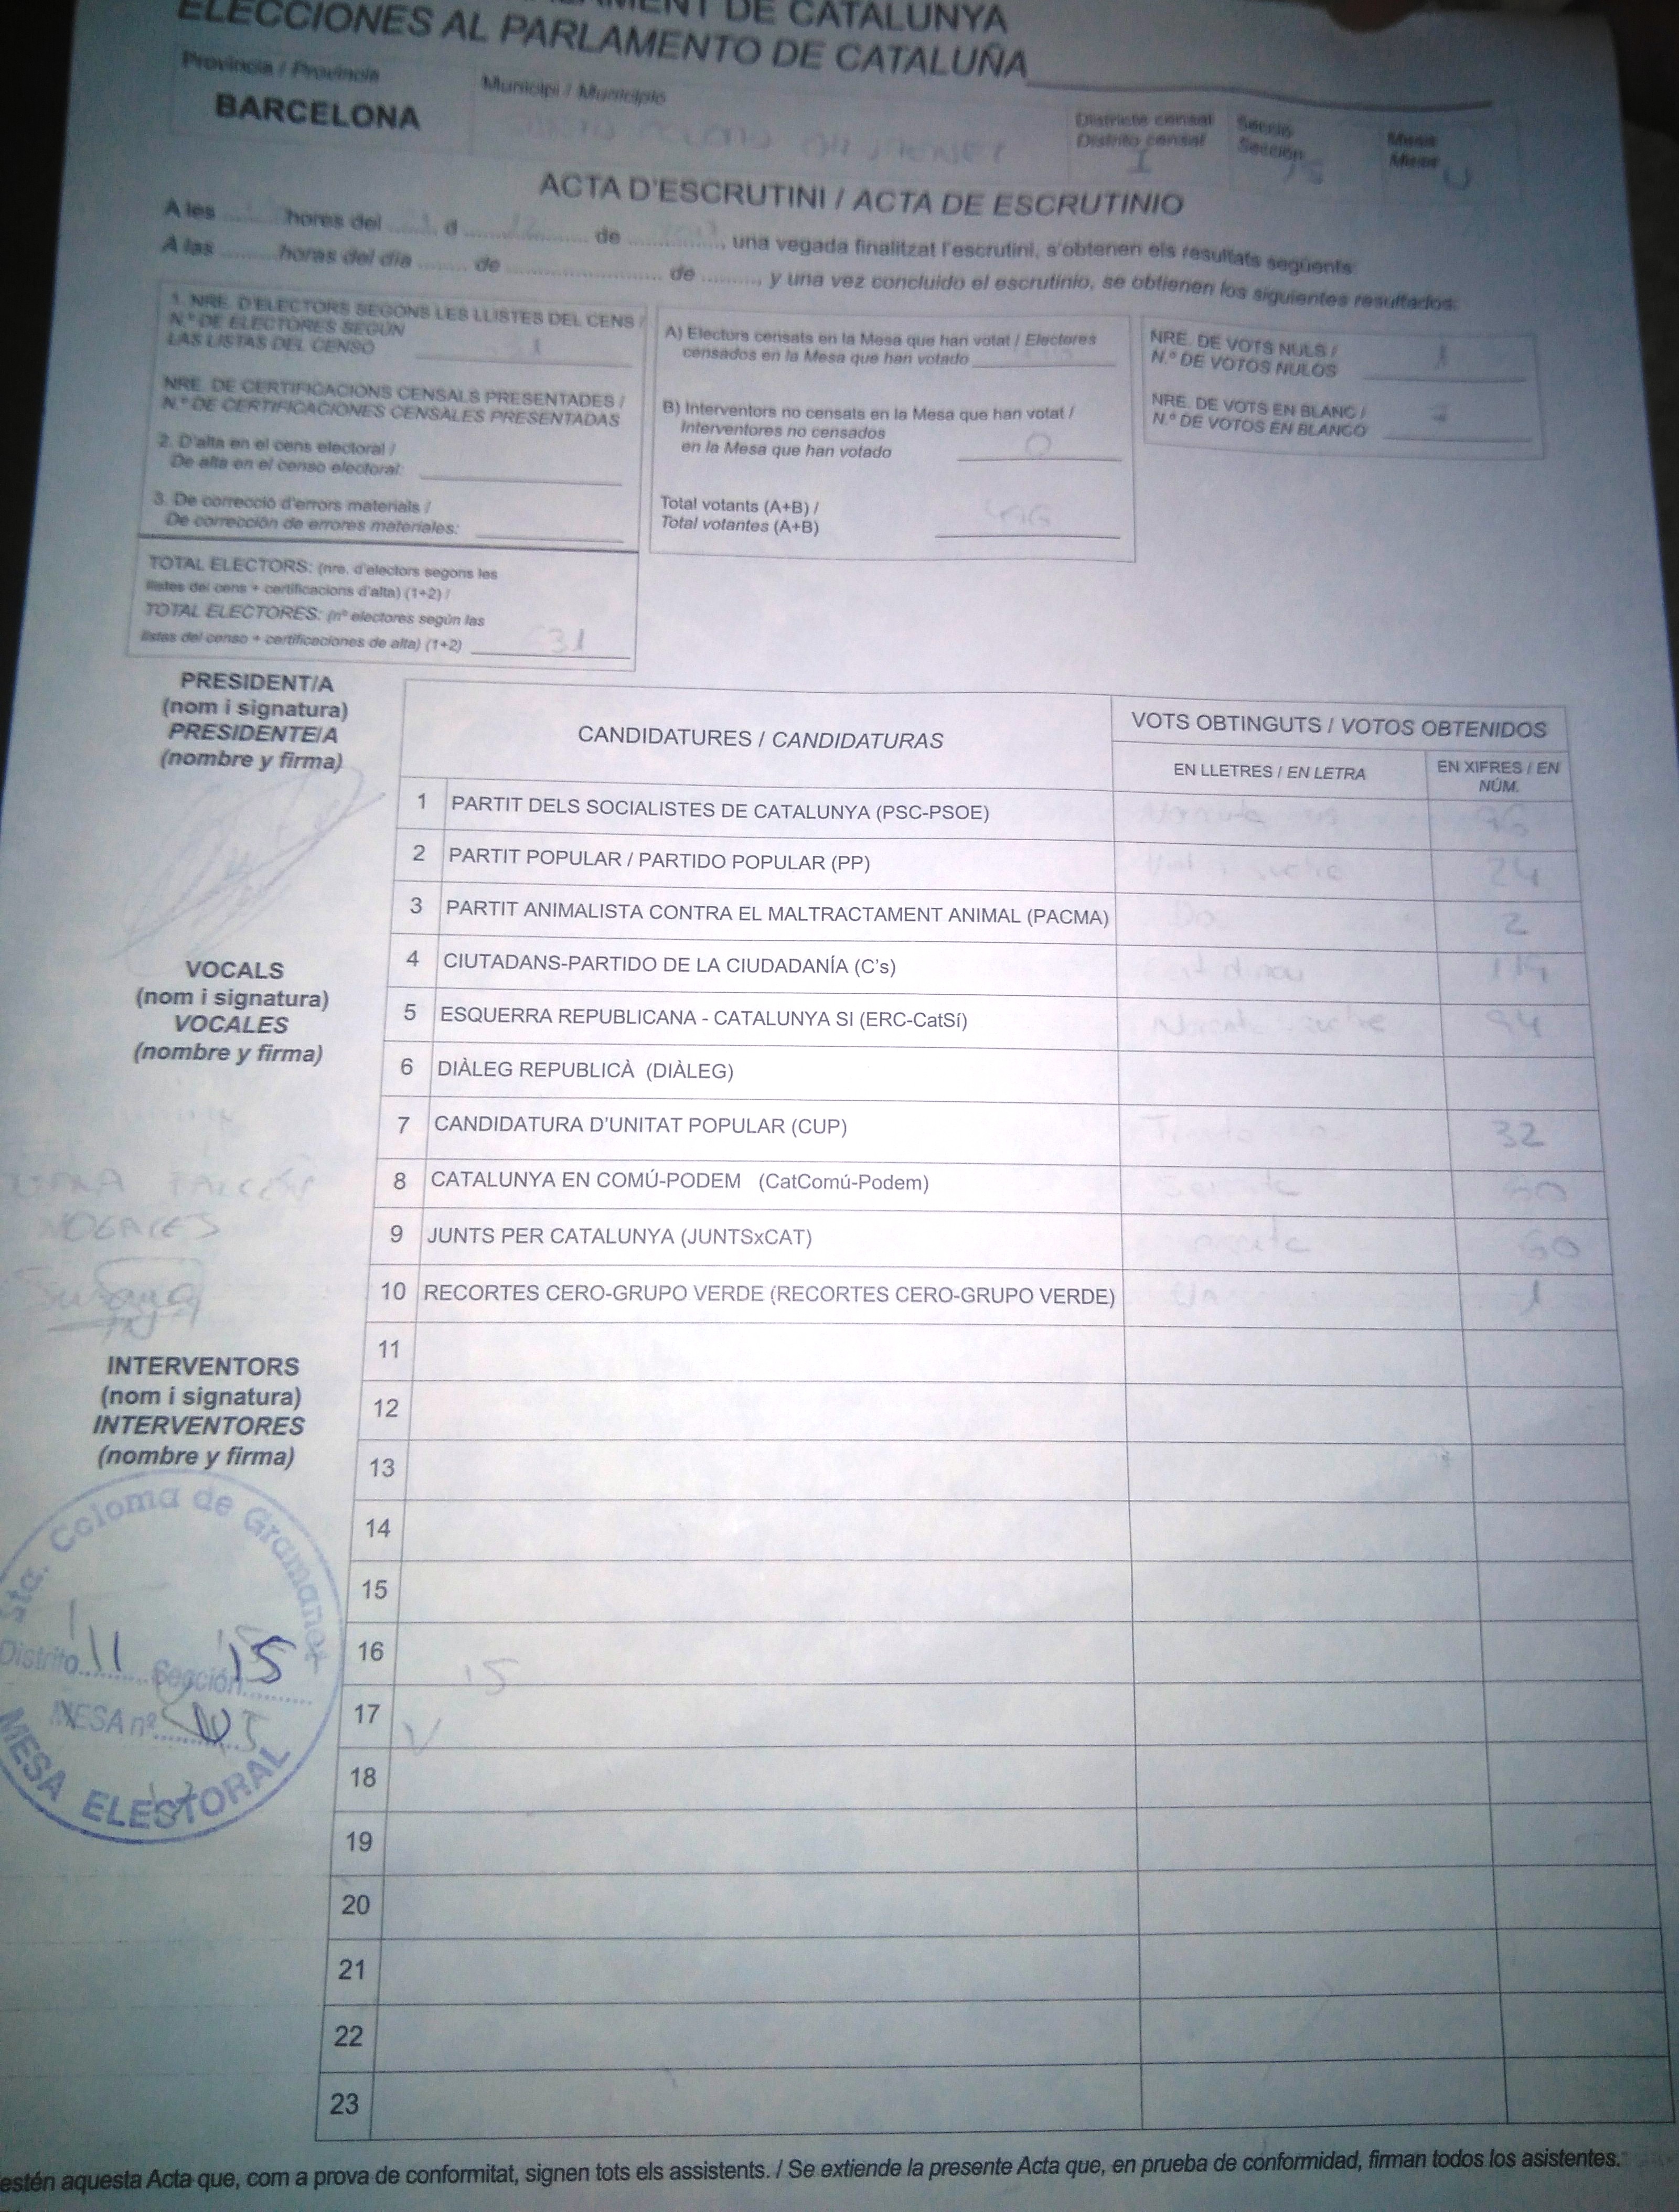 DE CATALUNYA
ELECCIONES AL PARLAMENTO DE CATALUÑA
Província / Provincia
BARCELONA
Municipi / Municipio
Districte censal
Distrito censal
I
Secció
Sección
15
Mesa
Mesa
U
ACTA D'ESCRUTINI / ACTA DE ESCRUTINIO
A les ........ hores del ........ d ........ de ........, una vegada finalitzat l'escrutini, s'obtenen els resultats següents:
A las ........ horas del día ........ de ........ de ........, y una vez concluido el escrutinio, se obtienen los siguientes resultados:
1. NRE. D'ELECTORS SEGONS LES LLISTES DEL CENS /
N.º DE ELECTORES SEGÚN
LAS LISTAS DEL CENSO
NRE. DE CERTIFICACIONS CENSALS PRESENTADES /
N.º DE CERTIFICACIONES CENSALES PRESENTADAS
2. D'alta en el cens electoral /
De alta en el censo electoral:
3. De correcció d'errors materials /
De corrección de errores materiales:
TOTAL ELECTORS: (nre. d'electors segons les
llistes del cens + certificacions d'alta) (1+2) /
TOTAL ELECTORES: (nº electores según las
listas del censo + certificaciones de alta) (1+2)
A) Electors censats en la Mesa que han votat / Electores
censados en la Mesa que han votado
B) Interventors no censats en la Mesa que han votat /
Interventores no censados
en la Mesa que han votado 0
Total votants (A+B) /
Total votantes (A+B)
NRE. DE VOTS NULS /
N.º DE VOTOS NULOS
NRE. DE VOTS EN BLANC /
N.º DE VOTOS EN BLANCO
PRESIDENT/A
(nom i signatura)
PRESIDENTE/A
(nombre y firma)
VOCALS
(nom i signatura)
VOCALES
(nombre y firma)
NOGALES
INTERVENTORS
(nom i signatura)
INTERVENTORES
(nombre y firma)
CANDIDATURES / CANDIDATURAS
VOTS OBTINGUTS / VOTOS OBTENIDOS
EN LLETRES / EN LETRA
EN XIFRES / EN NÚM.
1 PARTIT DELS SOCIALISTES DE CATALUNYA (PSC-PSOE) 96
2 PARTIT POPULAR / PARTIDO POPULAR (PP) 24
3 PARTIT ANIMALISTA CONTRA EL MALTRACTAMENT ANIMAL (PACMA) 2
4 CIUTADANS-PARTIDO DE LA CIUDADANÍA (C's)
5 ESQUERRA REPUBLICANA - CATALUNYA SI (ERC-CatSí) 94
6 DIÀLEG REPUBLICÀ (DIÀLEG)
7 CANDIDATURA D'UNITAT POPULAR (CUP) 32
8 CATALUNYA EN COMÚ-PODEM (CatComú-Podem)
9 JUNTS PER CATALUNYA (JUNTSxCAT) 60
10 RECORTES CERO-GRUPO VERDE (RECORTES CERO-GRUPO VERDE) 1
11
12
13
14
15
16 15
17
18
19
20
21
22
23
Sta. Coloma de Gramanet
Distrito 11 Sección 15
MESA nº
MESA ELECTORAL
estén aquesta Acta que, com a prova de conformitat, signen tots els assistents. / Se extiende la presente Acta que, en prueba de conformidad, firman todos los asistentes.